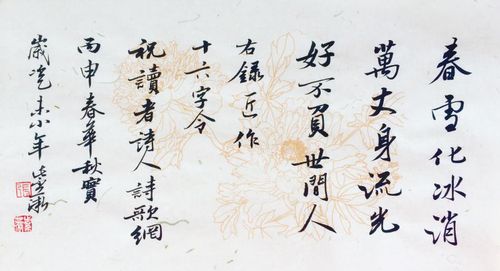 春雪化冰消
萬丈身流光
好不負世間人
右錄近作
十六字令
祝讀者詩人詩歌網
丙申春華秋實
歲乞未小年